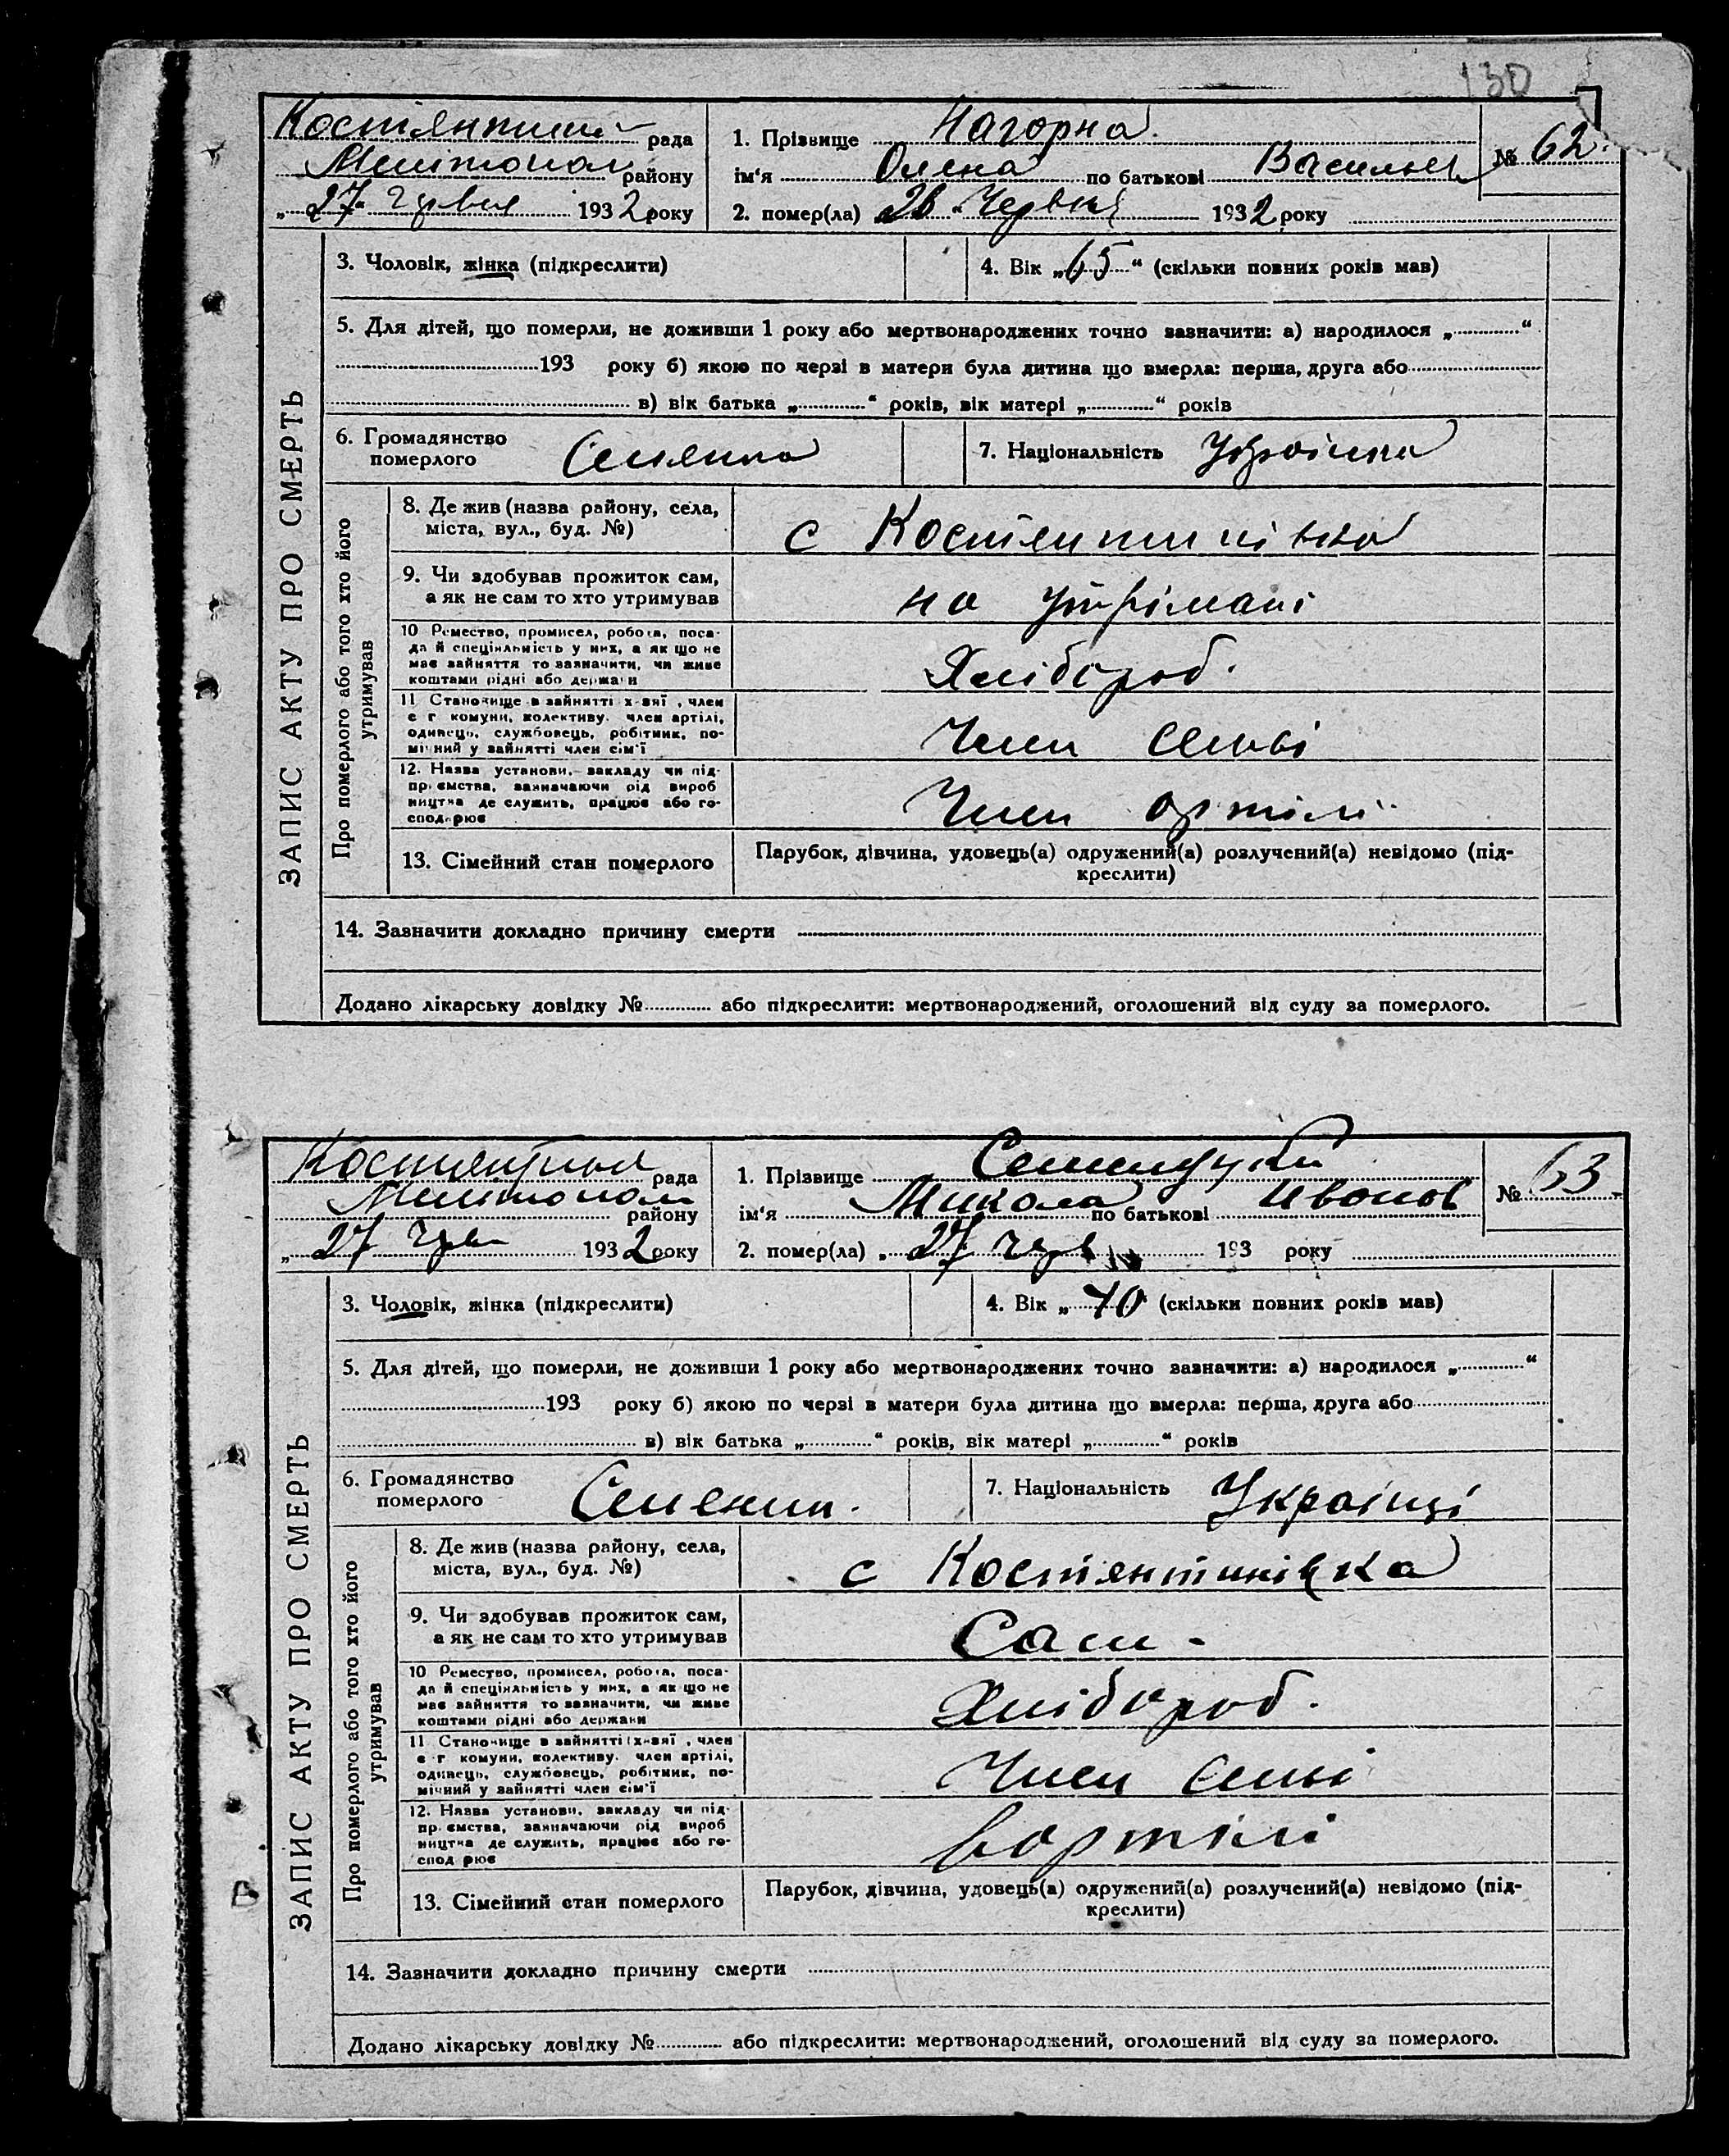 130
Костянтин рада
Мелітопол району
„27“ Червня 1932 року
1. Прізвище Нагорна.
№ 62.
ім‘я Олена по батькові Васильев
2. помер(ла) 26 Червня 1932 року
3. Чоловік, жінка (підкреслити)
4. Вік „65“ (скільки повних років мав)
5. Для дітей, що померли, не доживши 1 року або мертвонароджених точно зазначити: а) народилося „ “
193 року б) якою по черзі в матери була дитина що вмерла: перша, друга або
в) вік батька „ “ років, вік матері „ “ років
6. Громадянство
померлого
Селянка
7. Національність Українка
ЗАПИС АКТУ ПРО СМЕРТЬ
Про померлого або того хто його
утримував
8. Де жив (назва району, села,
міста, вул., буд. №)
с Костянтинівка
9. Чи здобував прожиток сам,
а як не сам то хто утримував
на утрімані
10 Ремество, промисел, робота, поса-
да й спеціяльність у них, а як що не
має зайняття то зазначити, чи живе
коштами рідні або держави
Хлібороб.
11 Становище в зайнятті х-вяї , член
с г комуни, колективу. член артілі,
одинець, службовець, робітник, по-
мічний у зайнятті член сім‘ї
Член семьі
12. Назва установи, закладу чи під-
пр. ємства, зазначаючи рід вироб
ництва де служить, працює або го-
спод рює
Член артілі
13. Сімейний стан померлого
Парубок, дівчина, удовець(а) одружений(а) розлучений(а) невідомо (під-
креслити)
14. Зазначити докладно причину смерти
Додано лікарську довідку № або підкреслити: мертвонароджений, оголошений від суду за померлого.
рада
Мелітопол району
„ 27 Черв 1932 року
1. Прізвище
№ 63
ім‘я Микола по батькові Иванов
2. помер(ла) „ 27 Черв 193 року
3. Чоловік, жінка (підкреслити)
4. Вік „70“ (скільки повних років мав)
5. Для дітей, що померли, не доживши 1 року або мертвонароджених точно зазначити: а) народилося „ “
193 року б) якою по черзі в матери була дитина що вмерла: перша, друга або
в) вік батька „ “ років, вік матері „ “ років
6. Громадянство
померлого
Селянин.
7. Національність Українці
ЗАПИС АКТУ ПРО СМЕРТЬ
Про померлого або того хто його
утримував
8. Де жив (назва району, села,
міста, вул., буд. №)
с Костянтинівка
9. Чи здобував прожиток сам,
а як не сам то хто утримував
Сам -
10 Ремество, промисел, робота, поса-
да й спеціяльність у них, а як що не
має зайняття то зазначити, чи живе
коштами рідні або держави
Хлібороб.
11 Становище в зайнятті х-вяї , член
с г комуни, колективу. член артілі,
одинець, службовець, робітник, по-
мічний у зайнятті член сім‘ї
Член семі
12. Назва установи, закладу чи під-
пр. ємства, зазначаючи рід вироб
ництва де служить, працює або го-
спод рює
вортілі
13. Сімейний стан померлого
Парубок, дівчина, удовець(а) одружений(а) розлучений(а) невідомо (під-
креслити)
14. Зазначити докладно причину смерти
Додано лікарську довідку № або підкреслити: мертвонароджений, оголошений від суду за померлого.